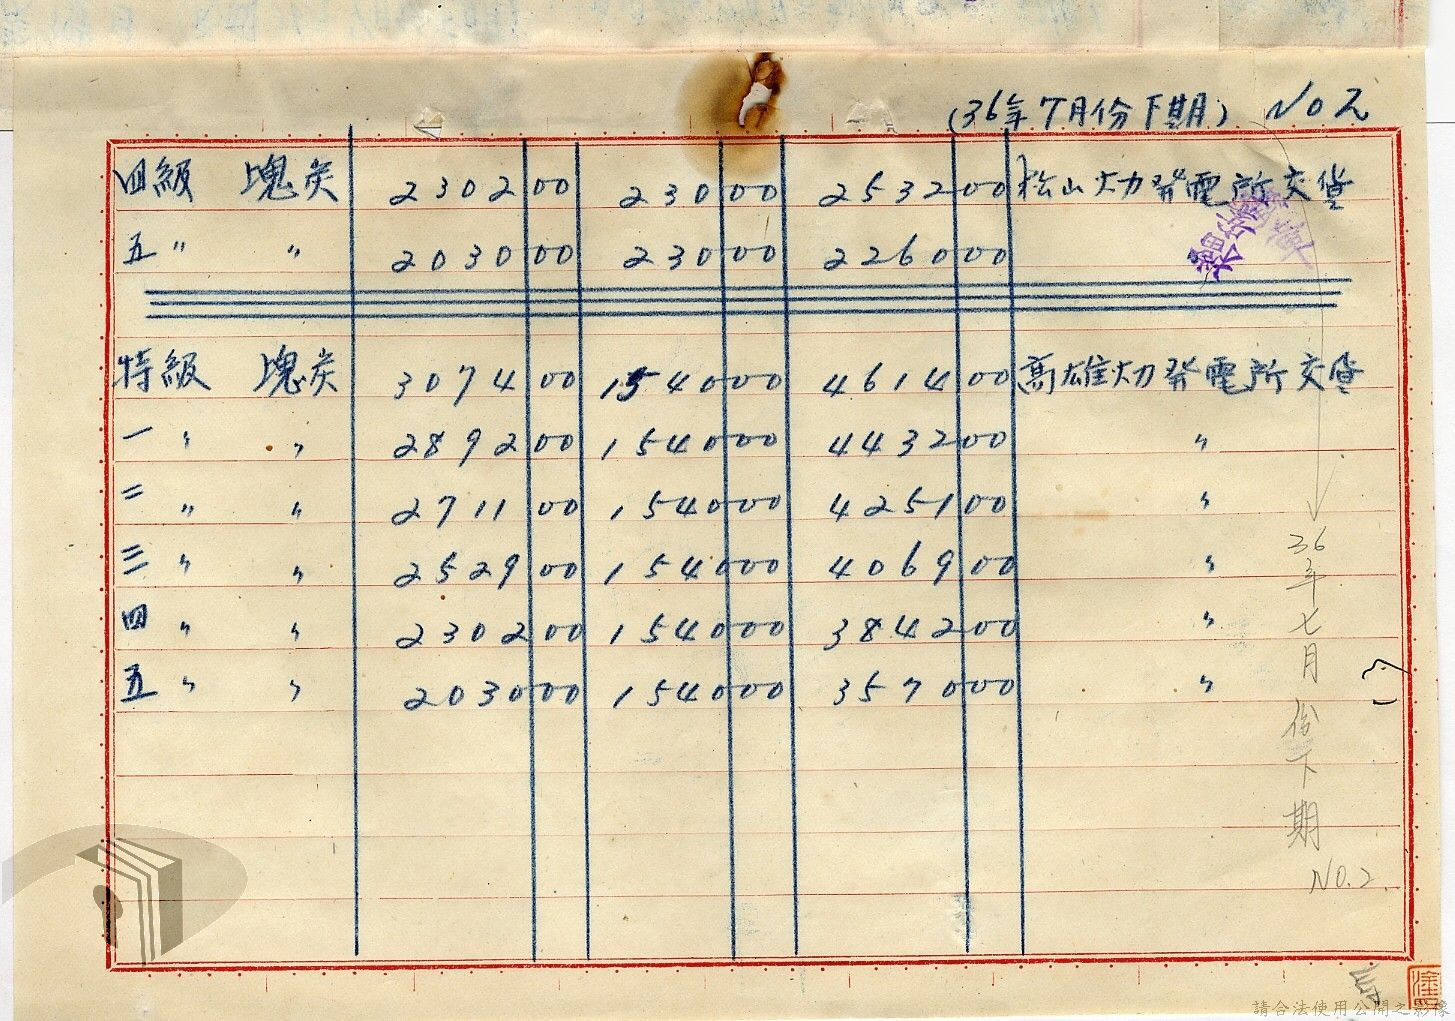 (36年7月份下期) NO2
四級 塊炭 2302 00 230 00 2532 00 松山火力發電所交貨
五〃 〃 2030 00 230 00 2260 00
特級 塊炭 3074 00 1540 00 4614 00 高雄火力發電所交貨
一〃 〃 2892 00 1540 00 4432 00 〃
二〃 〃 2711 00 1540 00 4251 00 〃
三〃 〃 2529 00 1540 00 4069 00 〃
四〃 〃 2302 00 1540 00 3842 00 〃
五〃 〃 2030 00 1540 00 3570 00 〃
36年七月份下期 NO.2.
請合法使用公開之影像